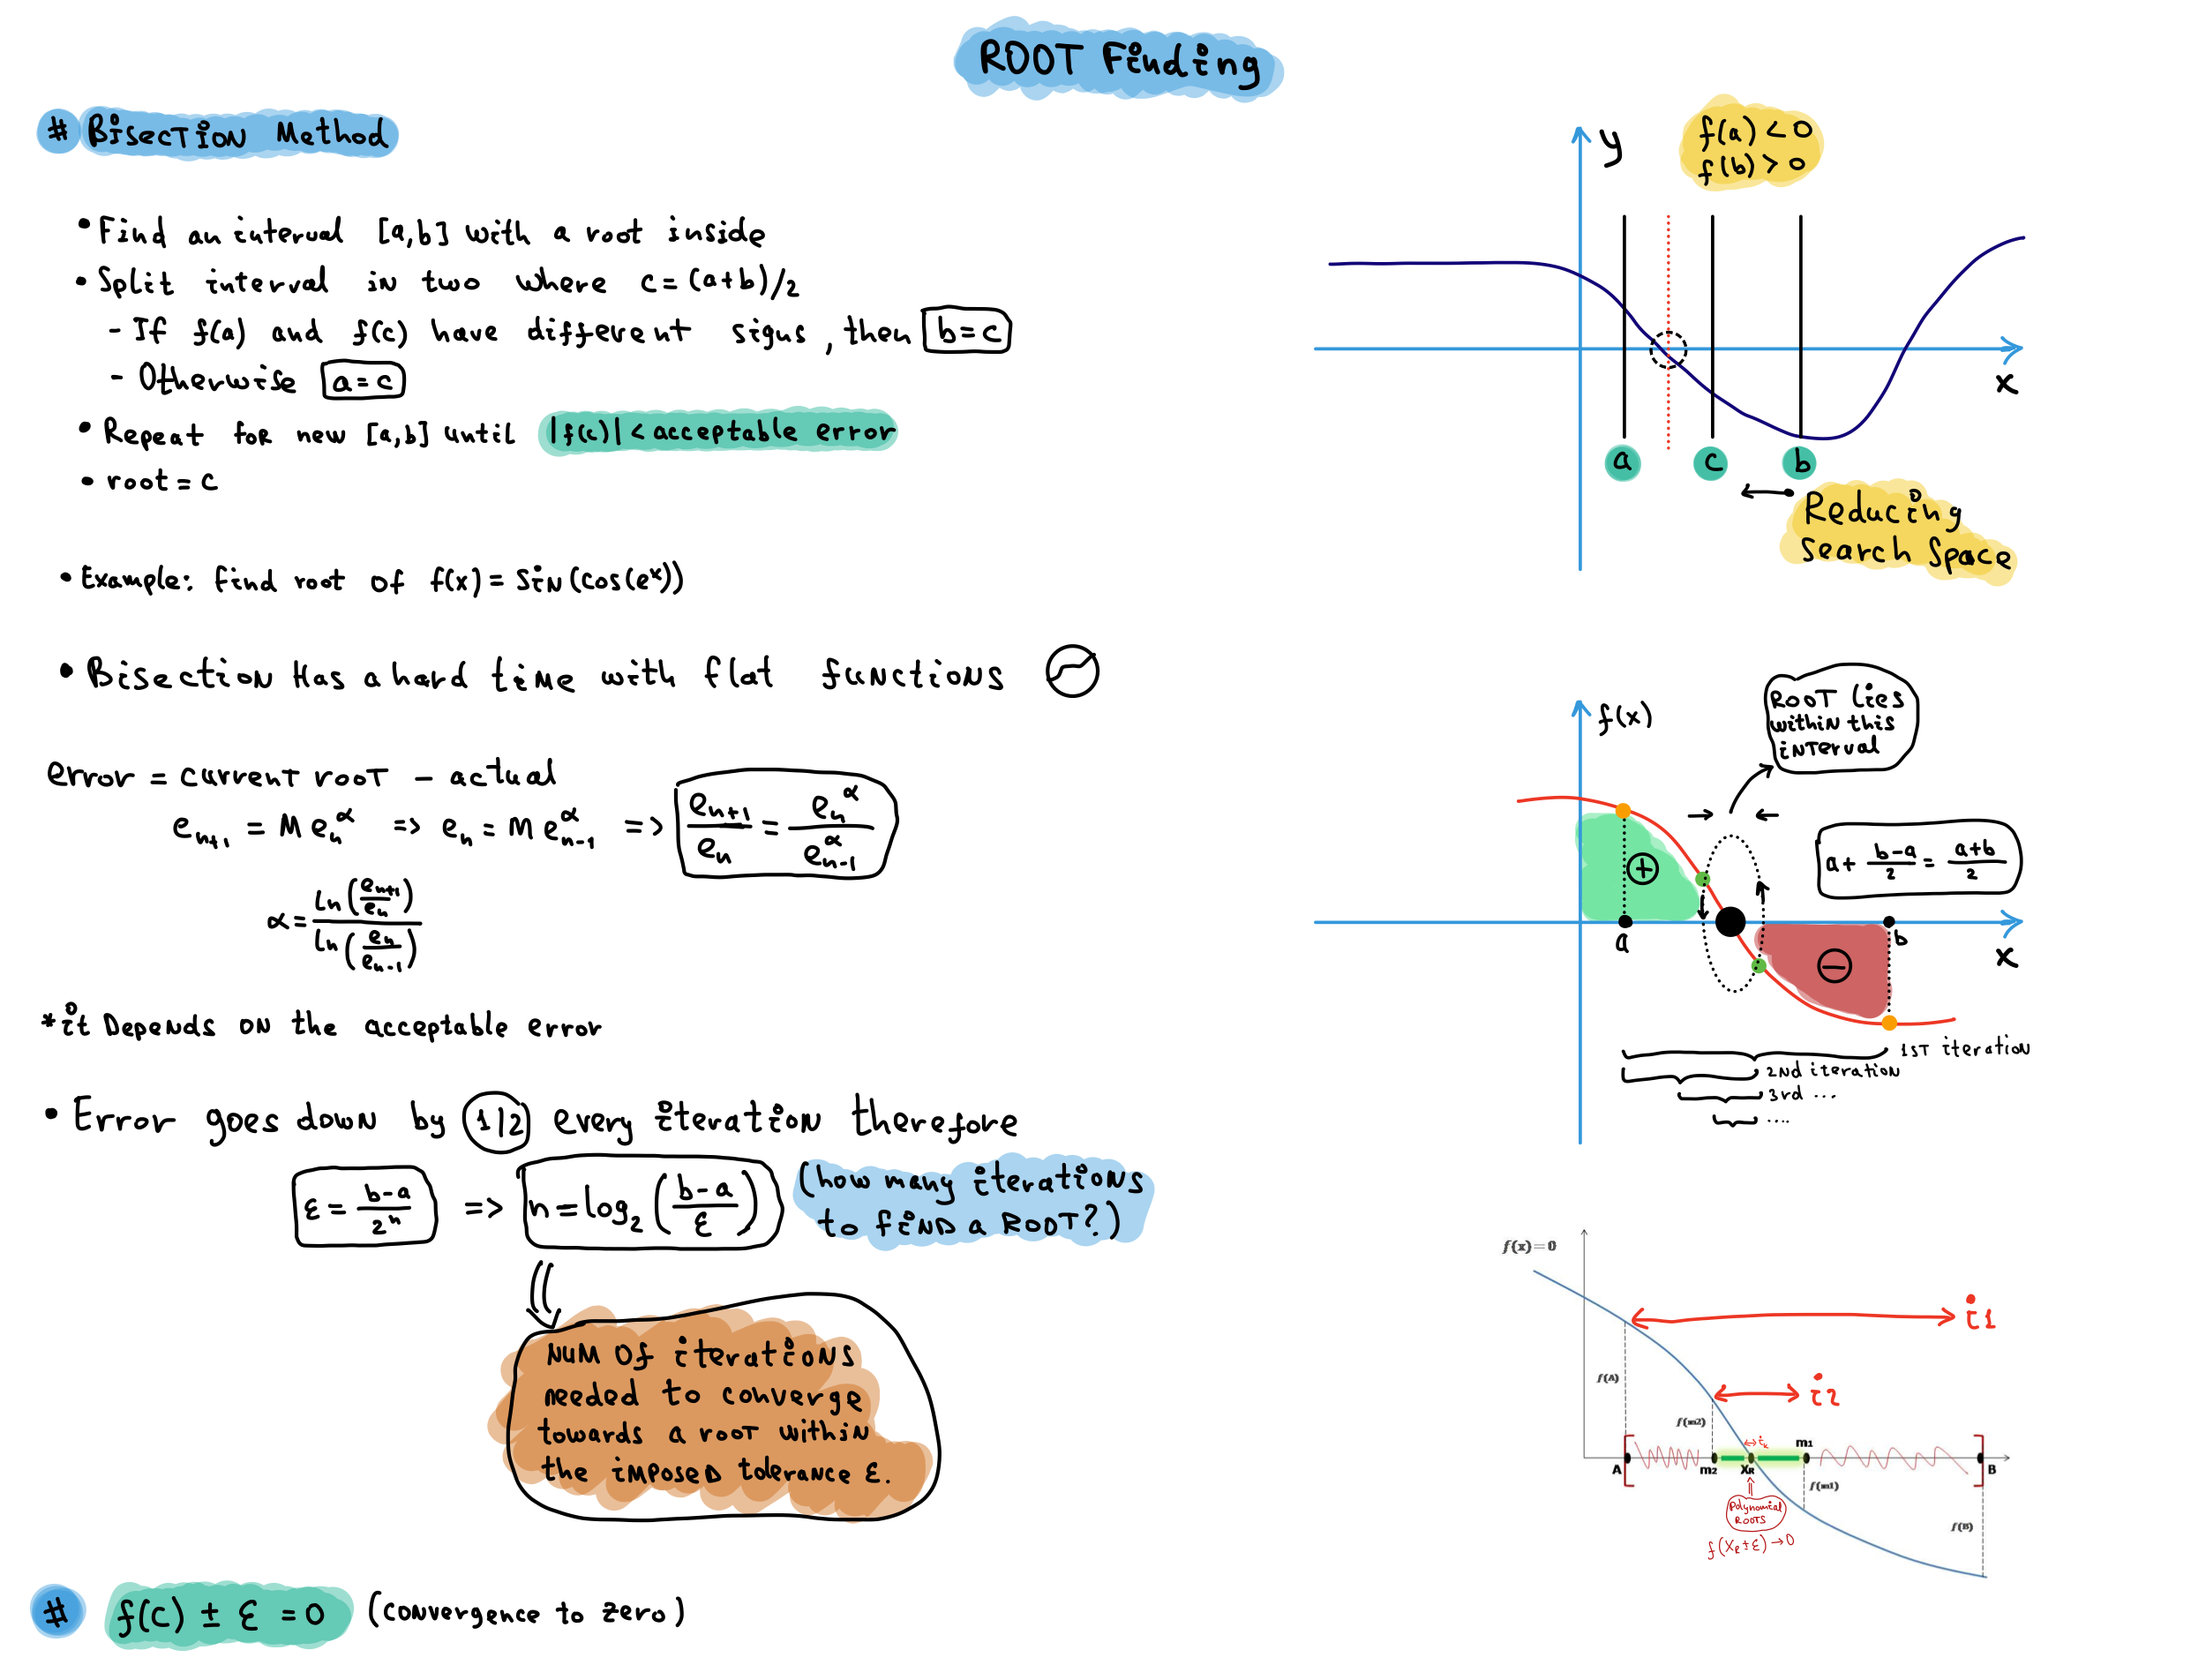 ROOT Finding
# Bisection Method
• Find an interval [a,b] with a root inside
• Split interval in two where c = (a+b)/2
- If f(a) and f(c) have different signs, then b=c
- Otherwise a=c
• Repeat for new [a,b] until |f(c)| < acceptable error
• root = c
• Example: find root of f(x) = sin(cos(eˣ))
• Bisection Has a hard time with flat functions
error = current root – actual
eₙ₊₁ = M eₙ^α => eₙ = M eₙ₋₁^α => eₙ₊₁/eₙ = eₙ^α/eₙ₋₁^α
α = ln(eₙ₊₁/eₙ) / ln(eₙ/eₙ₋₁)
*it Depends on the acceptable error
• Error goes down by 1/2 every iteration therefore
ε = (b-a)/2ⁿ => n = log₂((b-a)/ε) (how many iterations
to find a ROOT?)
NUM Of iterations
needed to converge
towards a root within
the imposed tolerance ε.
# f(c) ± ε = 0 (convergence to zero)
y
f(a) < 0
f(b) > 0
x
a c b
Reducing
Search Space
f(x)
ROOT lies
within this
interval
a + (b-a)/2 = (a+b)/2
+
a
b
x
–
1st iteration
2nd iteration
3rd ...
....
f(x)=0
i1
f(A)
i2
f(m2)
iₖ
m1
A m2 XR B
f(m1)
Polynomial
ROOTS
f(B)
f(XR ± ε) → 0